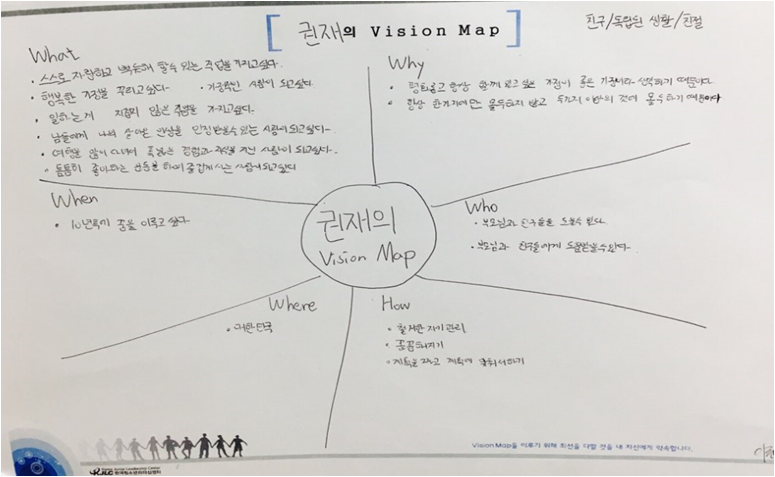 권재의 Vision Map
친구/독립된 생활/친절
What
• 스스로 자랑하고 뿌듯해 할 수 있는 직업을 가지고싶다.
• 행복한 가정을 꾸리고싶다. • 가정적인 사람이 되고싶다.
• 일하는게 지겹지 않은 직업을 가지고싶다.
• 남들에게 나의 살아온 인생을 인정받을수있는 사람이되고싶다.
• 여행을 많이 다니며 폭넓은 경험과 지식을 가진 사람이되고싶다.
• 틈틈히 좋아하는 운동을 하며 즐겁게 사는 사람이되고싶다
Why
• 항상 함께 있고 싶은 가정이 좋은 가정이라 생각하기 때문이다.
• 항상 한가지에만 몰두하지 않고 두가지 이상의 것에 몰두하기 때문이다
When
• 10년뒤에 꿈을 이루고 싶다
권재의
Vision Map
Who
• 부모님과 친구들을 도울수 있다.
• 부모님과 친구들에게 도움받을수있다.
Where
• 대한민국
How
• 철저한 자기관리
• 꼼꼼해지기
• 계획을 짜고 계획에 맞춰서하기
Vision Map을 이루기 위해 최선을 다할 것을 내 자신에게 약속합니다.
KJLC 한국청소년리더십센터